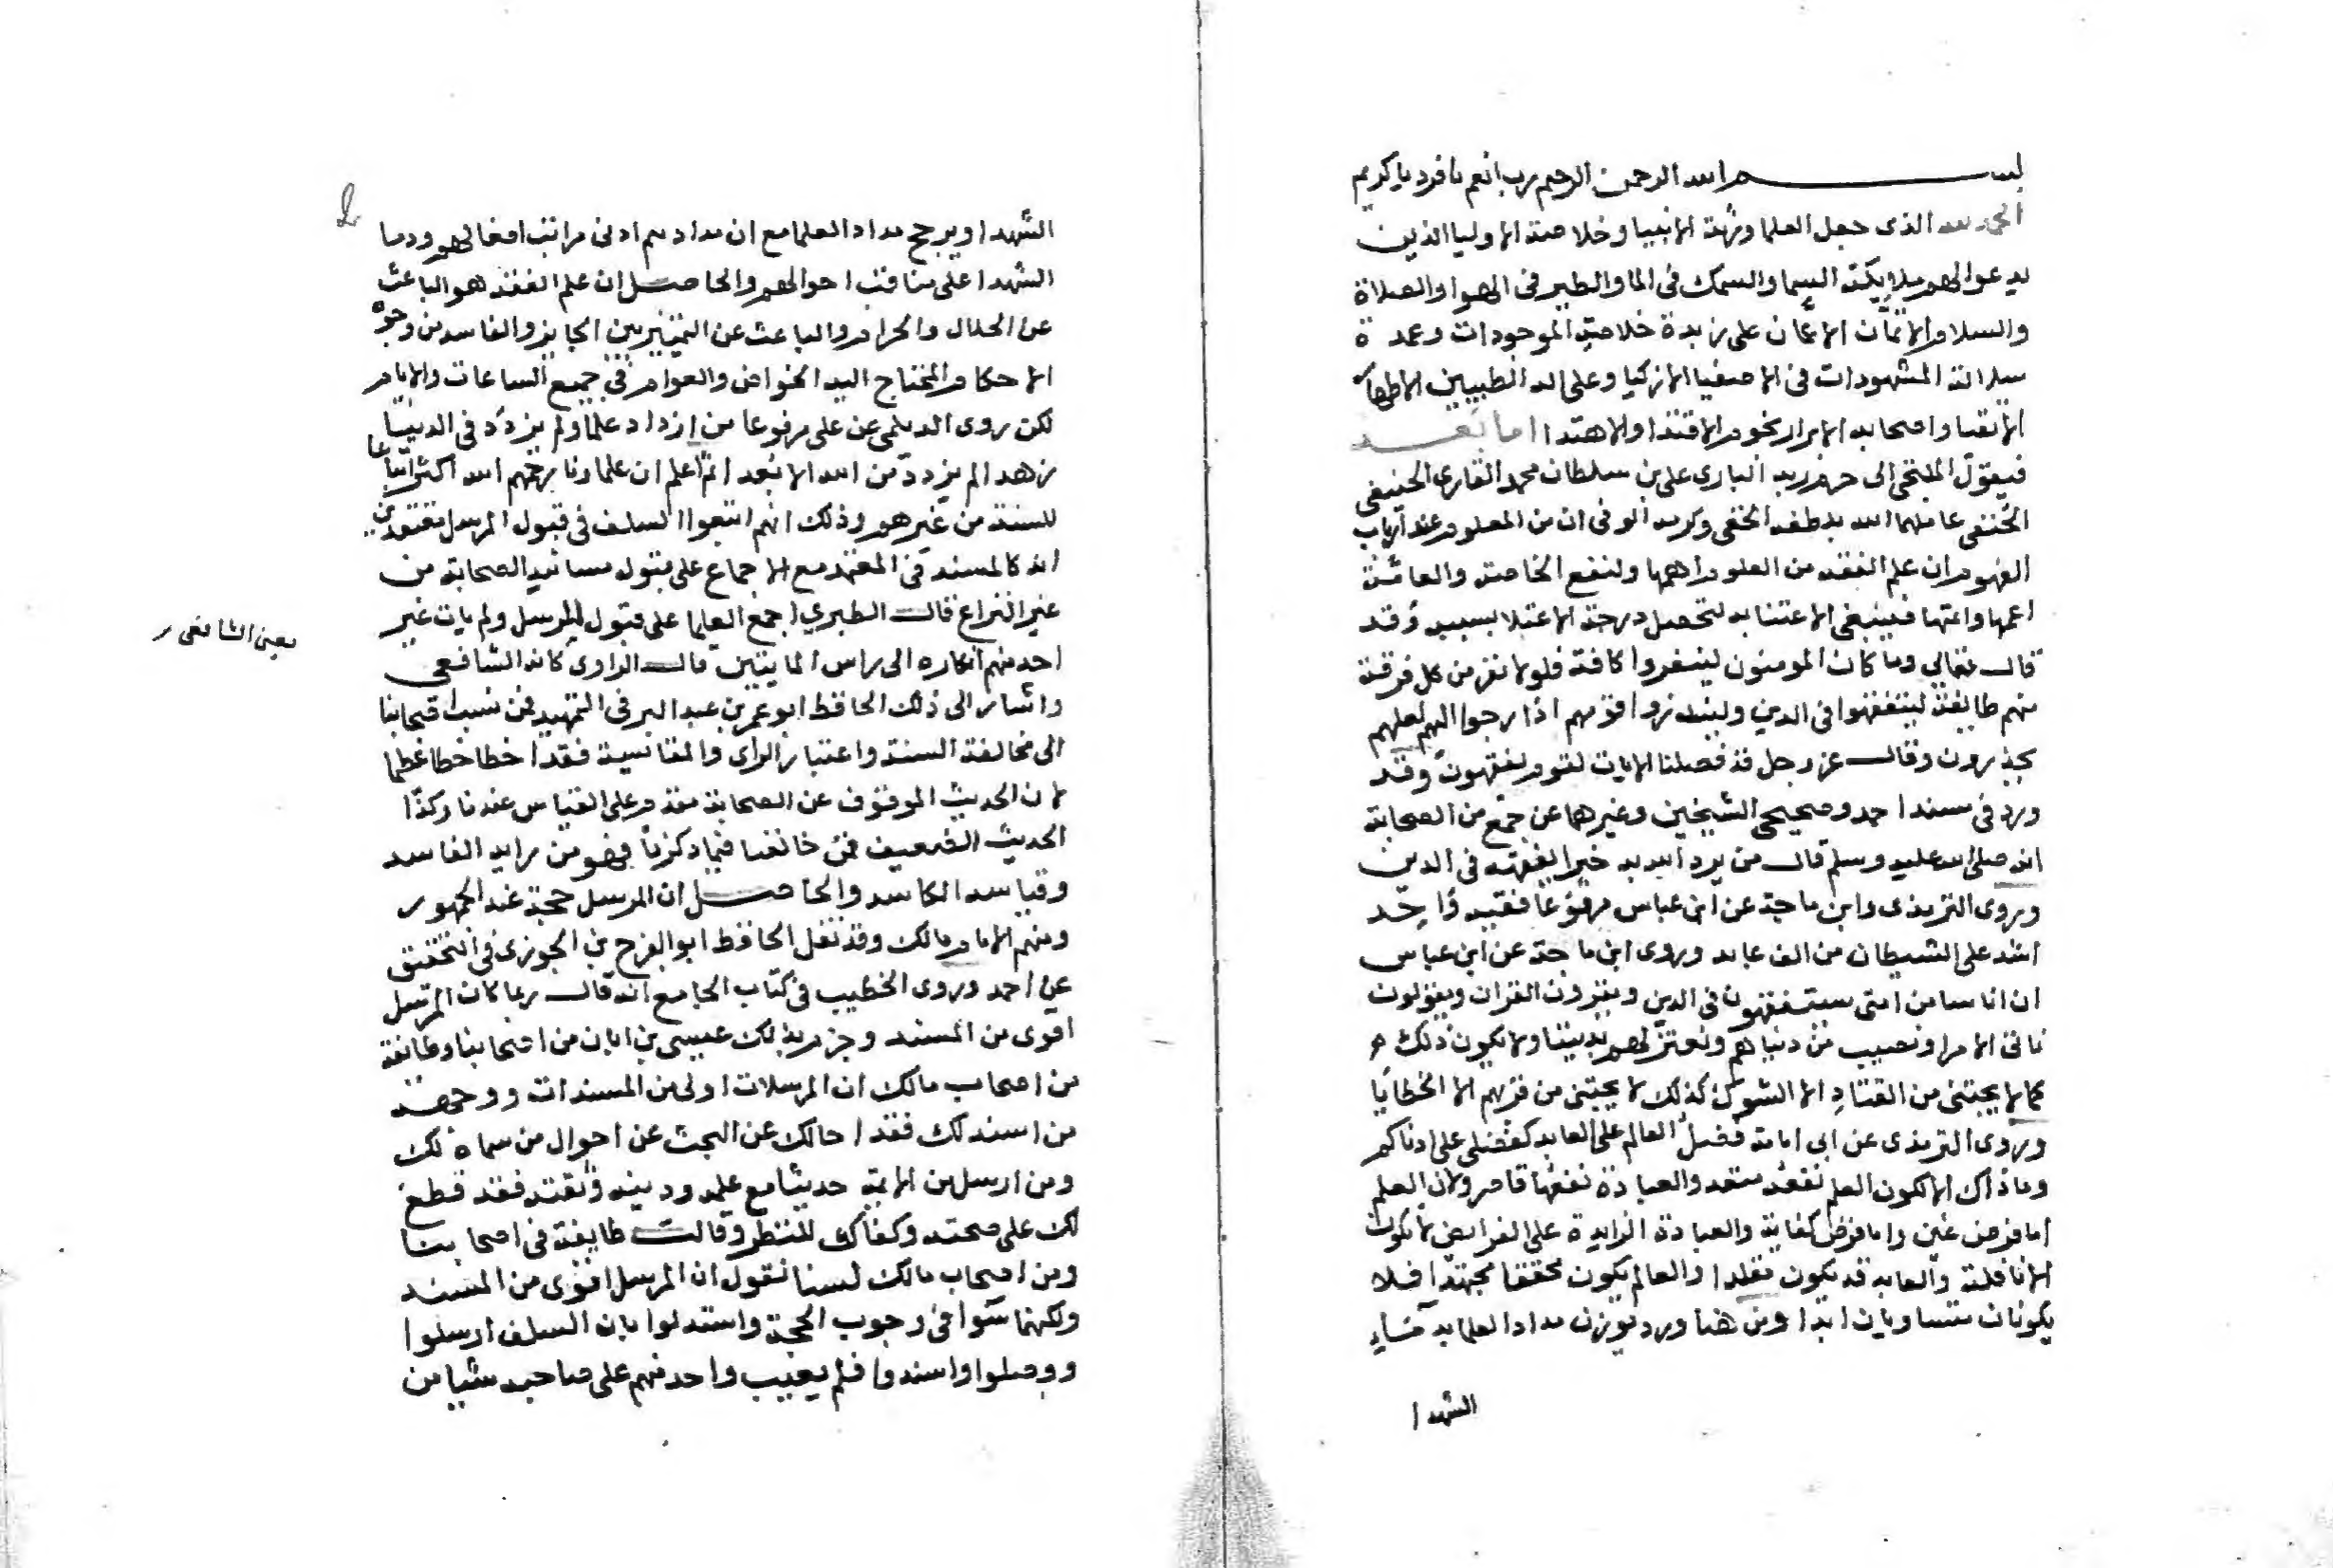 بسم الله الرحمن الرحيم رب انعم يا فرد يا كريم
الحمد لله الذى جعل العلما ورثة الانبيا وخلاصة الاوليا الذين
يدعوا لهم ملايكة السما والسمك فى الما والطير فى الهوا والصلاة
والسلام الاتمان الاعمان على زبدة خلاصة الموجودات وعمدة
سلالة المشهودات فى الاصفيا الازكيا وعلى اله الطيبين الاطهار
الاتقيا واصحابه الابرار نجوم الاقتدا والاهتدا اما بعد
فيقول الملتجى الى حرم ربه البارى على بن سلطان محمد القارى الحنيفى
الحنفى عاملهما الله بلطفه الخفى وكرمه الوفى ان من المعلوم عند ارباب
الفهوم ان علم الفقه من العلوم اهمها ولنفع الخاصة والعامة
اعمها واتمها فينبغى الاعتنا به لتحصل درجة الاعتلا بسببه وقد
قال تعالى وما كان المومنون لينفروا كافة فلولا نفر من كل فرقة
منهم طايفة ليتفقهوا فى الدين ولينذروا قومهم اذا رجعوا اليهم لعلهم
يحذرون وقال عز وجل قد فصلنا الايات لقوم يفقهون وقد
ورد فى مسند احمد وصحيحى الشيخين وغيرهما عن جمع من الصحابة
انه صلى الله عليه وسلم قال من يرد الله به خيرا يفقهه فى الدين
وروى الترمذى وابن ماجة عن ابن عباس مرفوعا فقيه واحد
اشد على الشيطان من الف عابد وروى ابن ماجة عن ابن عباس
ان اناسا من امتى سيتفقهون فى الدين ويقرون القران ويقولون
ناتى الامرا ونصيب من دنياهم ونعتزلهم بديننا ولا يكون ذلك
كما لا يجتنى من القتاد الا الشوك كذلك لا يجتنى من قربهم الا الخطايا
وروى الترمذى عن ابى امامة فضل العالم على العابد كفضلى على ادناكم
وما ذاك الا لكون العلم نفعه متعد والعبادة نفعها قاصر ولان العلم
اما فرض عين واما فرض كفاية والعبادة الزايدة على الفرايض لا يكون
الا نافلة والعابد قد يكون مقلدا والعالم يكون محققا مجتهدا فلا
يكونان متساويان ابدا ومن هنا ورد يوزن مداد العلما بدماء
الشهدا
الشهدا ويرجح مداد العلما مع ان مدادهم ادنى مراتب افعالهم ودما
الشهدا على مناقب احوالهم والحاصل ان علم الفقه هو الباعث
عن الحلال والحرام والباعث عن التمييز بين الجايز والفاسد من وجوه
الاحكام المحتاج اليه الخواص والعوام فى جميع الساعات والايام
لكن روى الديلمى عن على مرفوعا من ازداد علما ولم يزدد فى الدنيا
زهدا لم يزدد من الله الا بعدا ثم اعلم ان علماونا رحمهم الله اكثر اتباعا
للسنة من غيرهم وذلك انهم اتبعوا السلف فى قبول المرسل معتقدين
انه كالمسند فى المعتمد مع الاجماع على قبول مسانيد الصحابة من
غير النزاع قال الطبرى اجمع العلما على قبول المرسل ولم يات غير
احد منهم انكاره الى راس المايتين قال الراوى كانه الشافعى
يعنى الشافعى
واشار الى ذلك الحافظ ابو عمر بن عبد البر فى التمهيد فمن نسب اصحابنا
الى مخالفة السنة واعتبار الراى والمقايسة فقد اخطا خطا عظيما
لان الحديث الموقوف عن الصحابة مقدم على القياس عندنا وكذا
الحديث الضعيف فمن خالفنا فيما ذكرنا فهو من رايه الفاسد
وقياسه الكاسد والحاصل ان المرسل حجة عند الجمهور
ومنهم الامام مالك وقد نقل الحافظ ابو الفرج بن الجوزى فى التحقيق
عن احمد وروى الخطيب فى كتاب الجامع انه قال ربما كان المرسل
اقوى من المسند وجزم بذلك عيسى بن ابان من اصحابنا وطايفة
من اصحاب مالك ان المرسلات اولى من المسندات ووجهه
من اسند لك فقد احالك عن البحث عن احوال من سماه لك
ومن ارسل من الايمة حديثا مع علمه ودينه وثقته فقد قطع
لك على صحته وكفاك للنظر وقالت طايفة فى اصحابنا
ومن اصحاب مالك لسنا نقول ان المرسل اقوى من المسند
ولكنهما سوا فى وجوب الحجة واستدلوا بان السلف ارسلوا
ووصلوا واسندوا فلم يعيب واحد منهم على صاحبه شيا من